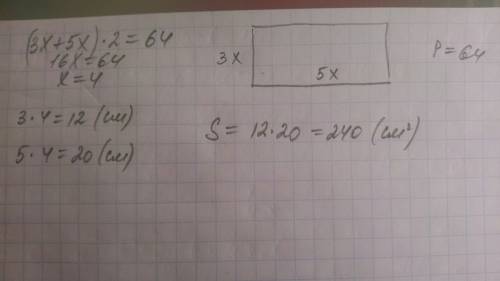 (3x+5x)·2=64
16x=64
x=4
3·4=12 (см)
5·4=20 (см)
3x
5x
P=64
S= 12·20 =240 (см²)